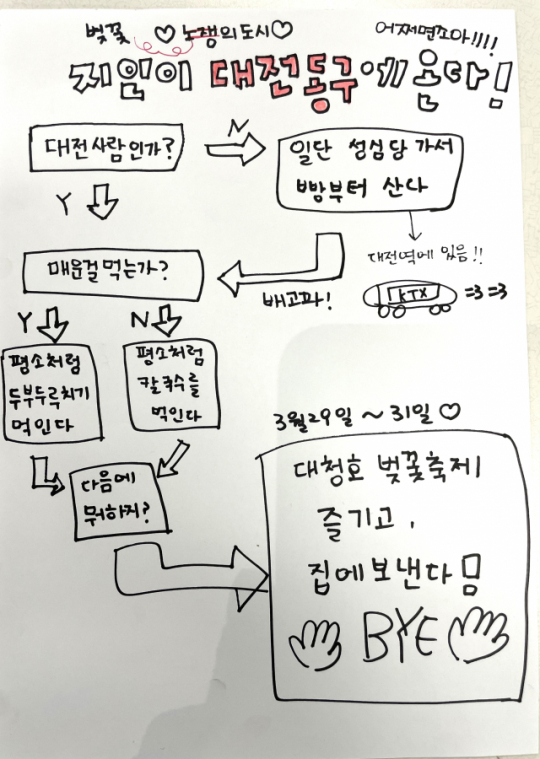 벚꽃 ♡노잼의도시♡ 어쩌면조아!!!!
지인이 대전동구에온다!
대전사람인가?
N
일단 성심당 가서
빵부터 산다
Y
대전역에 있음!!
KTX =3 =3
매운걸먹는가?
배고파!
Y
N
평소처럼
두부두루치기
먹인다
평소처럼
칼국수를
먹인다
다음에
뭐하지?
3월29일 ~ 31일 ♡
대청호 벚꽃축제
즐기고,
집에보낸다!
BYE